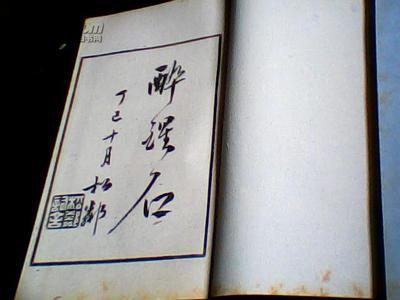 醉醒石
丁巳十月
松鄰